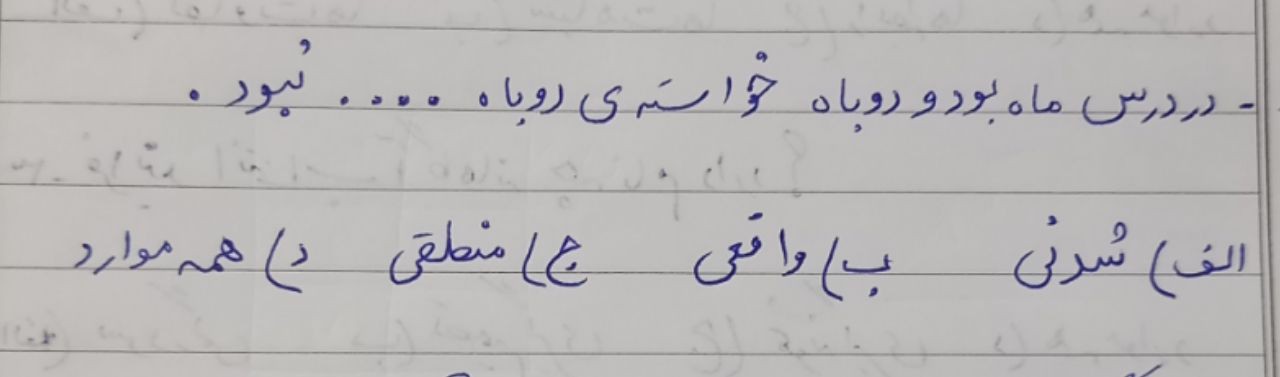 - در درس ماه بود و روباه خواسته ی روباه .... نبود .
الف) شدنی ب) واقعی ج) منطقی د) همه موارد